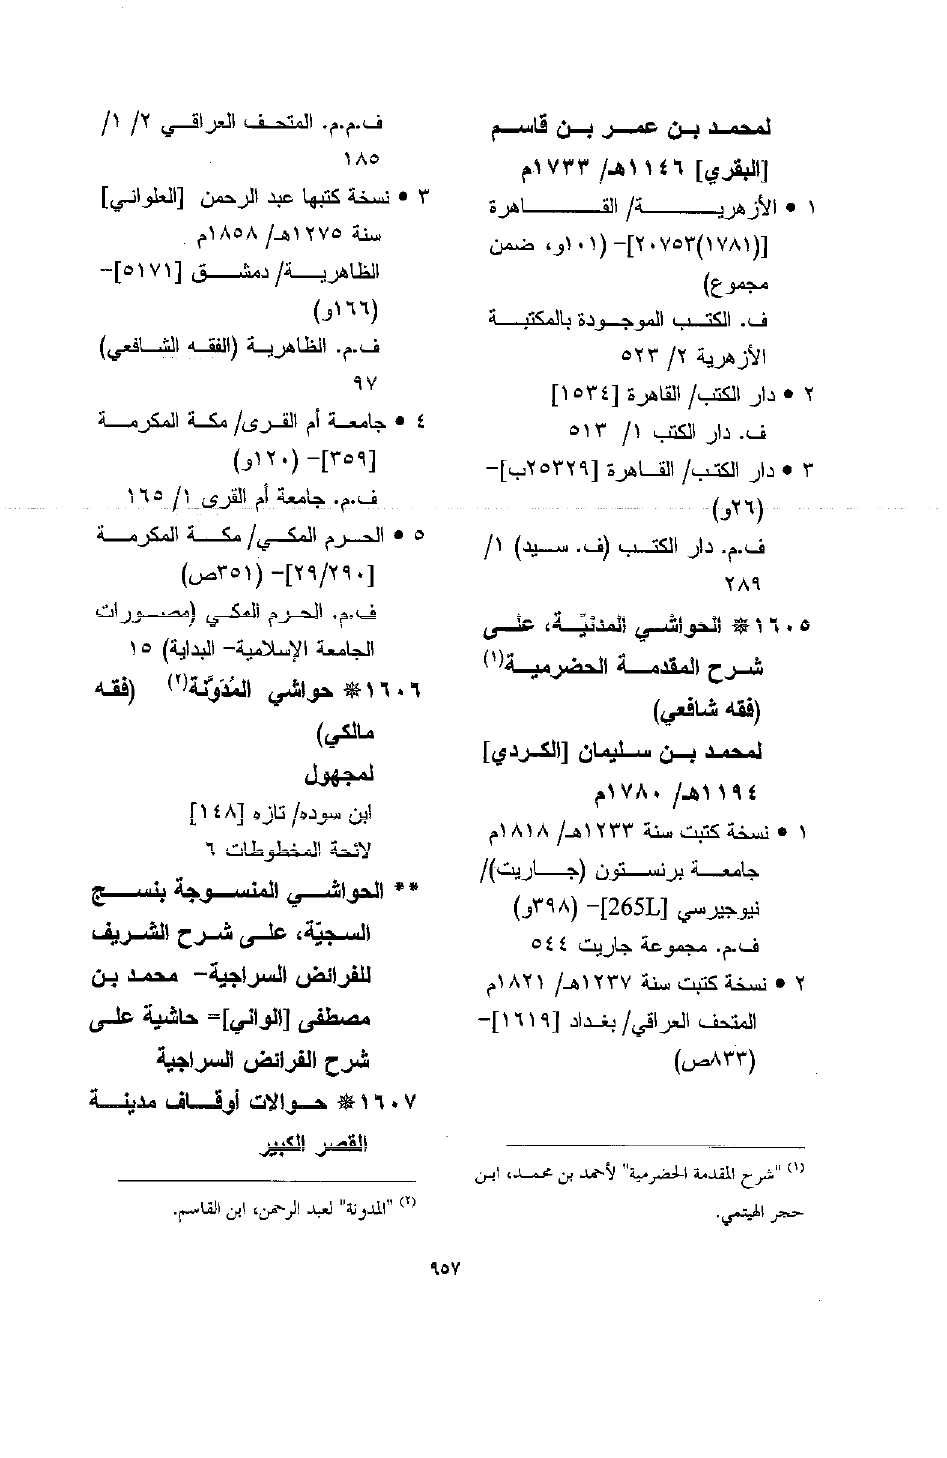 لمحمد بن عمر بن قاسم
[البقري] ١١٤٦هـ/ ١٧٣٣م
١ • الأزهرية/ القاهرة
[(١٧٨١)٢٠٧٥٣]- (١٠١و، ضمن
مجموع)
ف. الكتب الموجودة بالمكتبة
الأزهرية ٢/ ٥٢٣
٢ • دار الكتب/ القاهرة [١٥٣٤]
ف. دار الكتب ١/ ٥١٣
٣ • دار الكتب/ القاهرة [٢٥٣٢٩ب]-
(٢٦و)
ف.م. دار الكتب (ف. سيد) ١/
٢٨٩
١٦٠٥* الحواشي المدنيّة، على
شرح المقدمة الحضرمية(١)
(فقه شافعي)
لمحمد بن سليمان [الكردي]
١١٩٤هـ/ ١٧٨٠م
١ • نسخة كتبت سنة ١٢٣٣هـ/ ١٨١٨م
جامعة برنستون (جاريت)/
نيوجيرسي [265L]- (٣٩٨و)
ف.م. مجموعة جاريت ٥٤٤
٢ • نسخة كتبت سنة ١٢٣٧هـ/ ١٨٢١م
المتحف العراقي/ بغداد [١٦١٩]-
(٨٣٣ص)
(١) "شرح المقدمة الحضرمية" لأحمد بن محمد، ابن
حجر الهيتمي.
ف.م.م. المتحف العراقي ٢/ ١/
١٨٥
٣ • نسخة كتبها عبد الرحمن [العلواني]
سنة ١٢٧٥هـ/ ١٨٥٨م
الظاهرية/ دمشق [٥١٧١]-
(١٦٦و)
ف.م. الظاهرية (الفقه الشافعي)
٩٧
٤ • جامعة أم القرى/ مكة المكرمة
[٣٥٩]- (١٢٠و)
ف.م. جامعة أم القرى ١/ ١٦٥
٥ • الحرم المكي/ مكة المكرمة
[٢٩/٢٩٠]- (٣٥١ص)
ف.م. الحرم المكي (مصورات
الجامعة الإسلامية- البداية) ١٥
١٦٠٦* حواشي المُدَوَّنة(٢) (فقه
مالكي)
لمجهول
ابن سوده/ تازه [١٤٨]
لائحة المخطوطات ٦
** الحواشي المنسوجة بنسج
السجيّة، على شرح الشريف
للفرائض السراجية- محمد بن
مصطفى [الواني]= حاشية على
شرح الفرائض السراجية
١٦٠٧* حوالات أوقاف مدينة
القصر الكبير
(٢) "المدونة" لعبد الرحمن، ابن القاسم.
٩٥٧